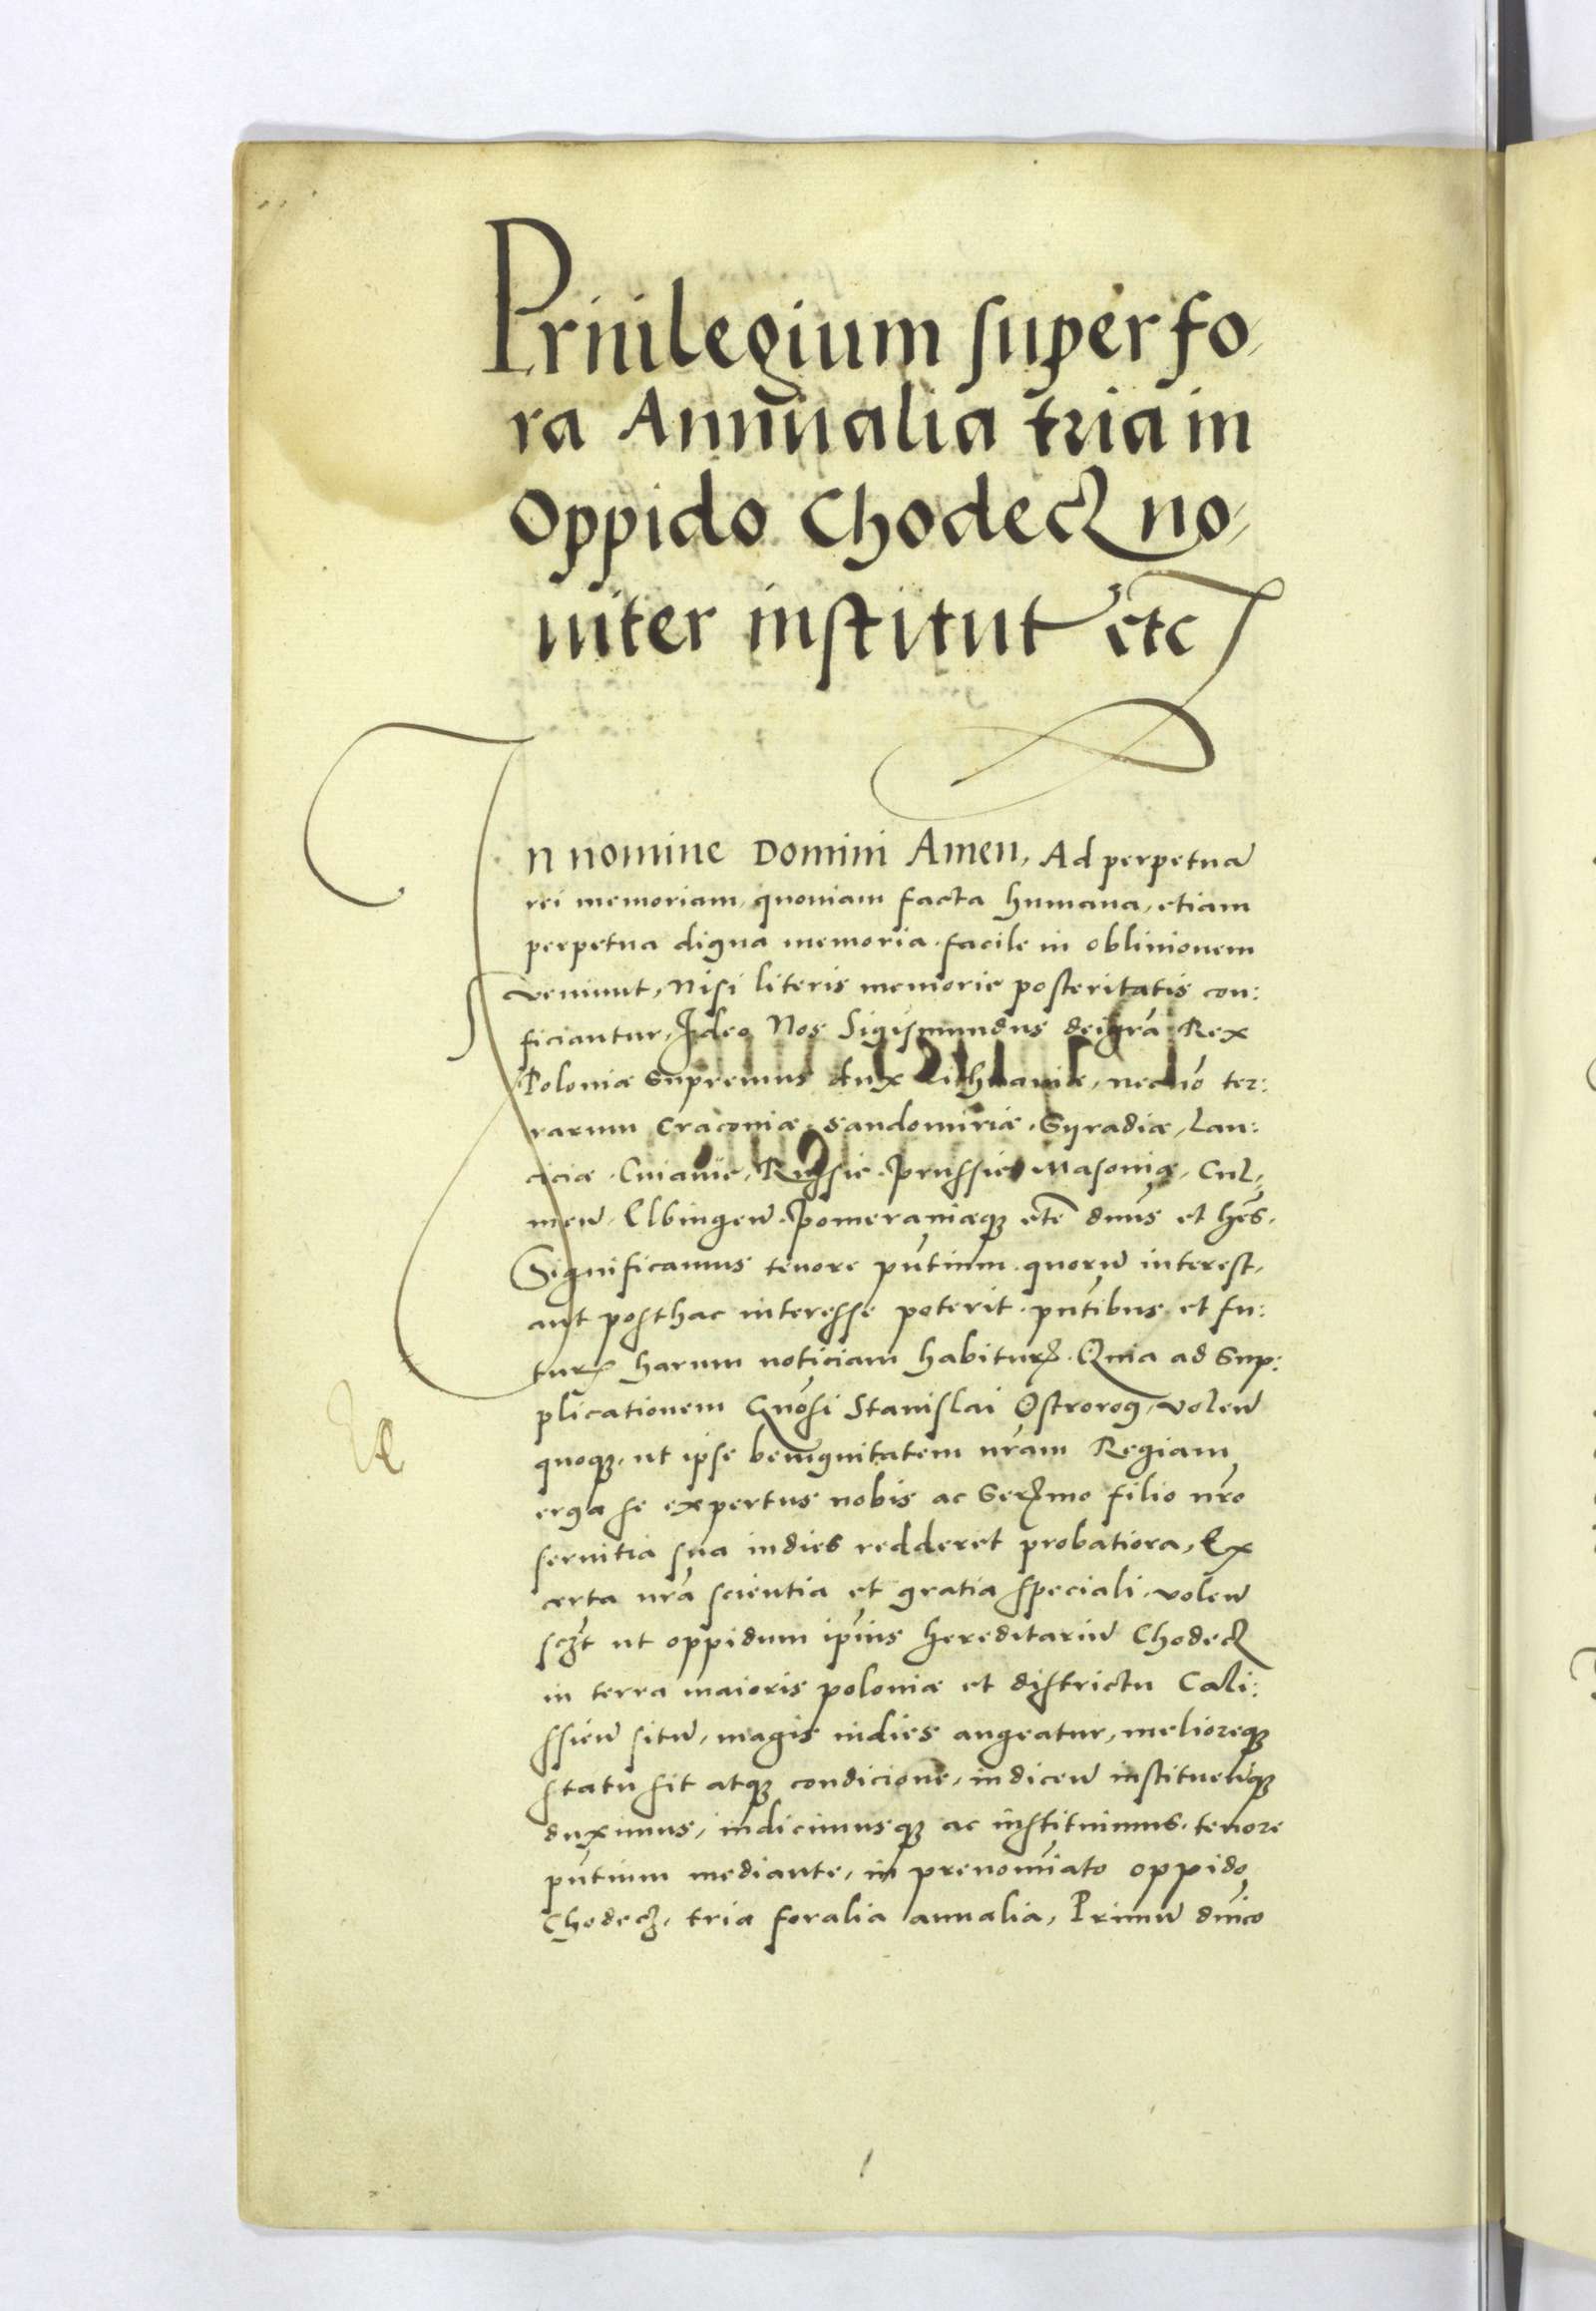 Priuilegium super fo,
ra Annualia tria in
Oppido Chodecz no,
uiter institut etc
In nomine Domini Amen, Ad perpetuā
rei memoriam, quoniam facta humana, etiam
perpetua digna memoria facile in obliuionem
veniunt, nisi literis memorie posteritatis con:
ficiantur, Ideo Nos Sigismundus dei grā Rex
Poloniæ Supremus dux Lithuaniæ, necnō ter:
rarum Cracouiæ, Sandomiriæ, Syradiæ, Lan:
ciciæ, Cuiauie, Russie, Prussie, Masouiæ, Cul,
meñ, Elbingeñ, Pomeraniæqȝ etc̄ dn̄us et hēs.
Significamus tenore pñtium quorū interest,
aut posthac interesse poterit, pñtibus et fu:
turꝭ harum noticiam habiturꝭ. Quia ad Sup:
plicationem Gñosi Stanislai Ostrorog, voleñ
quoqȝ, ut ipse benignitatem nr̄am Regiam
erga se expertus nobis ac Serꝭmo filio nr̄o
seruitia sua indies redderet probatiora, Ex
certa nr̄a scientia et gratia speciali, voleñ
scȝt ut oppidum ip̄ius hereditariū Chodecz
in terra maioris poloniæ et districtu Cali:
ssieñ sitū, magis indies augeatur, melioreqȝ
statu sit atqȝ condicione, indiceñ institueñqȝ
duximus, indicimusqȝ ac instituimus, tenore
pñtium mediante, in prenomiato oppido
Chodecz, tria foralia annalia, Primū dn̄ico